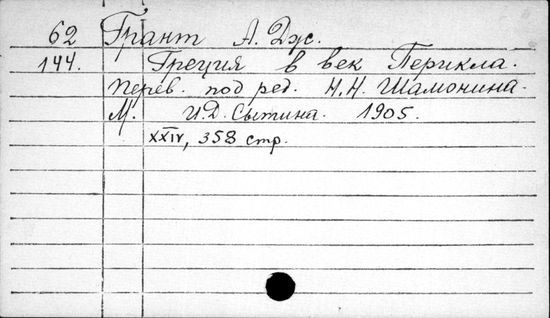 62 Грант А. Дж.
144. Греция в век Перикла.
Перев. под ред. Н.Н. Шамонина.
М. И.Д. Сытина. 1905.
XXIV, 358 стр.